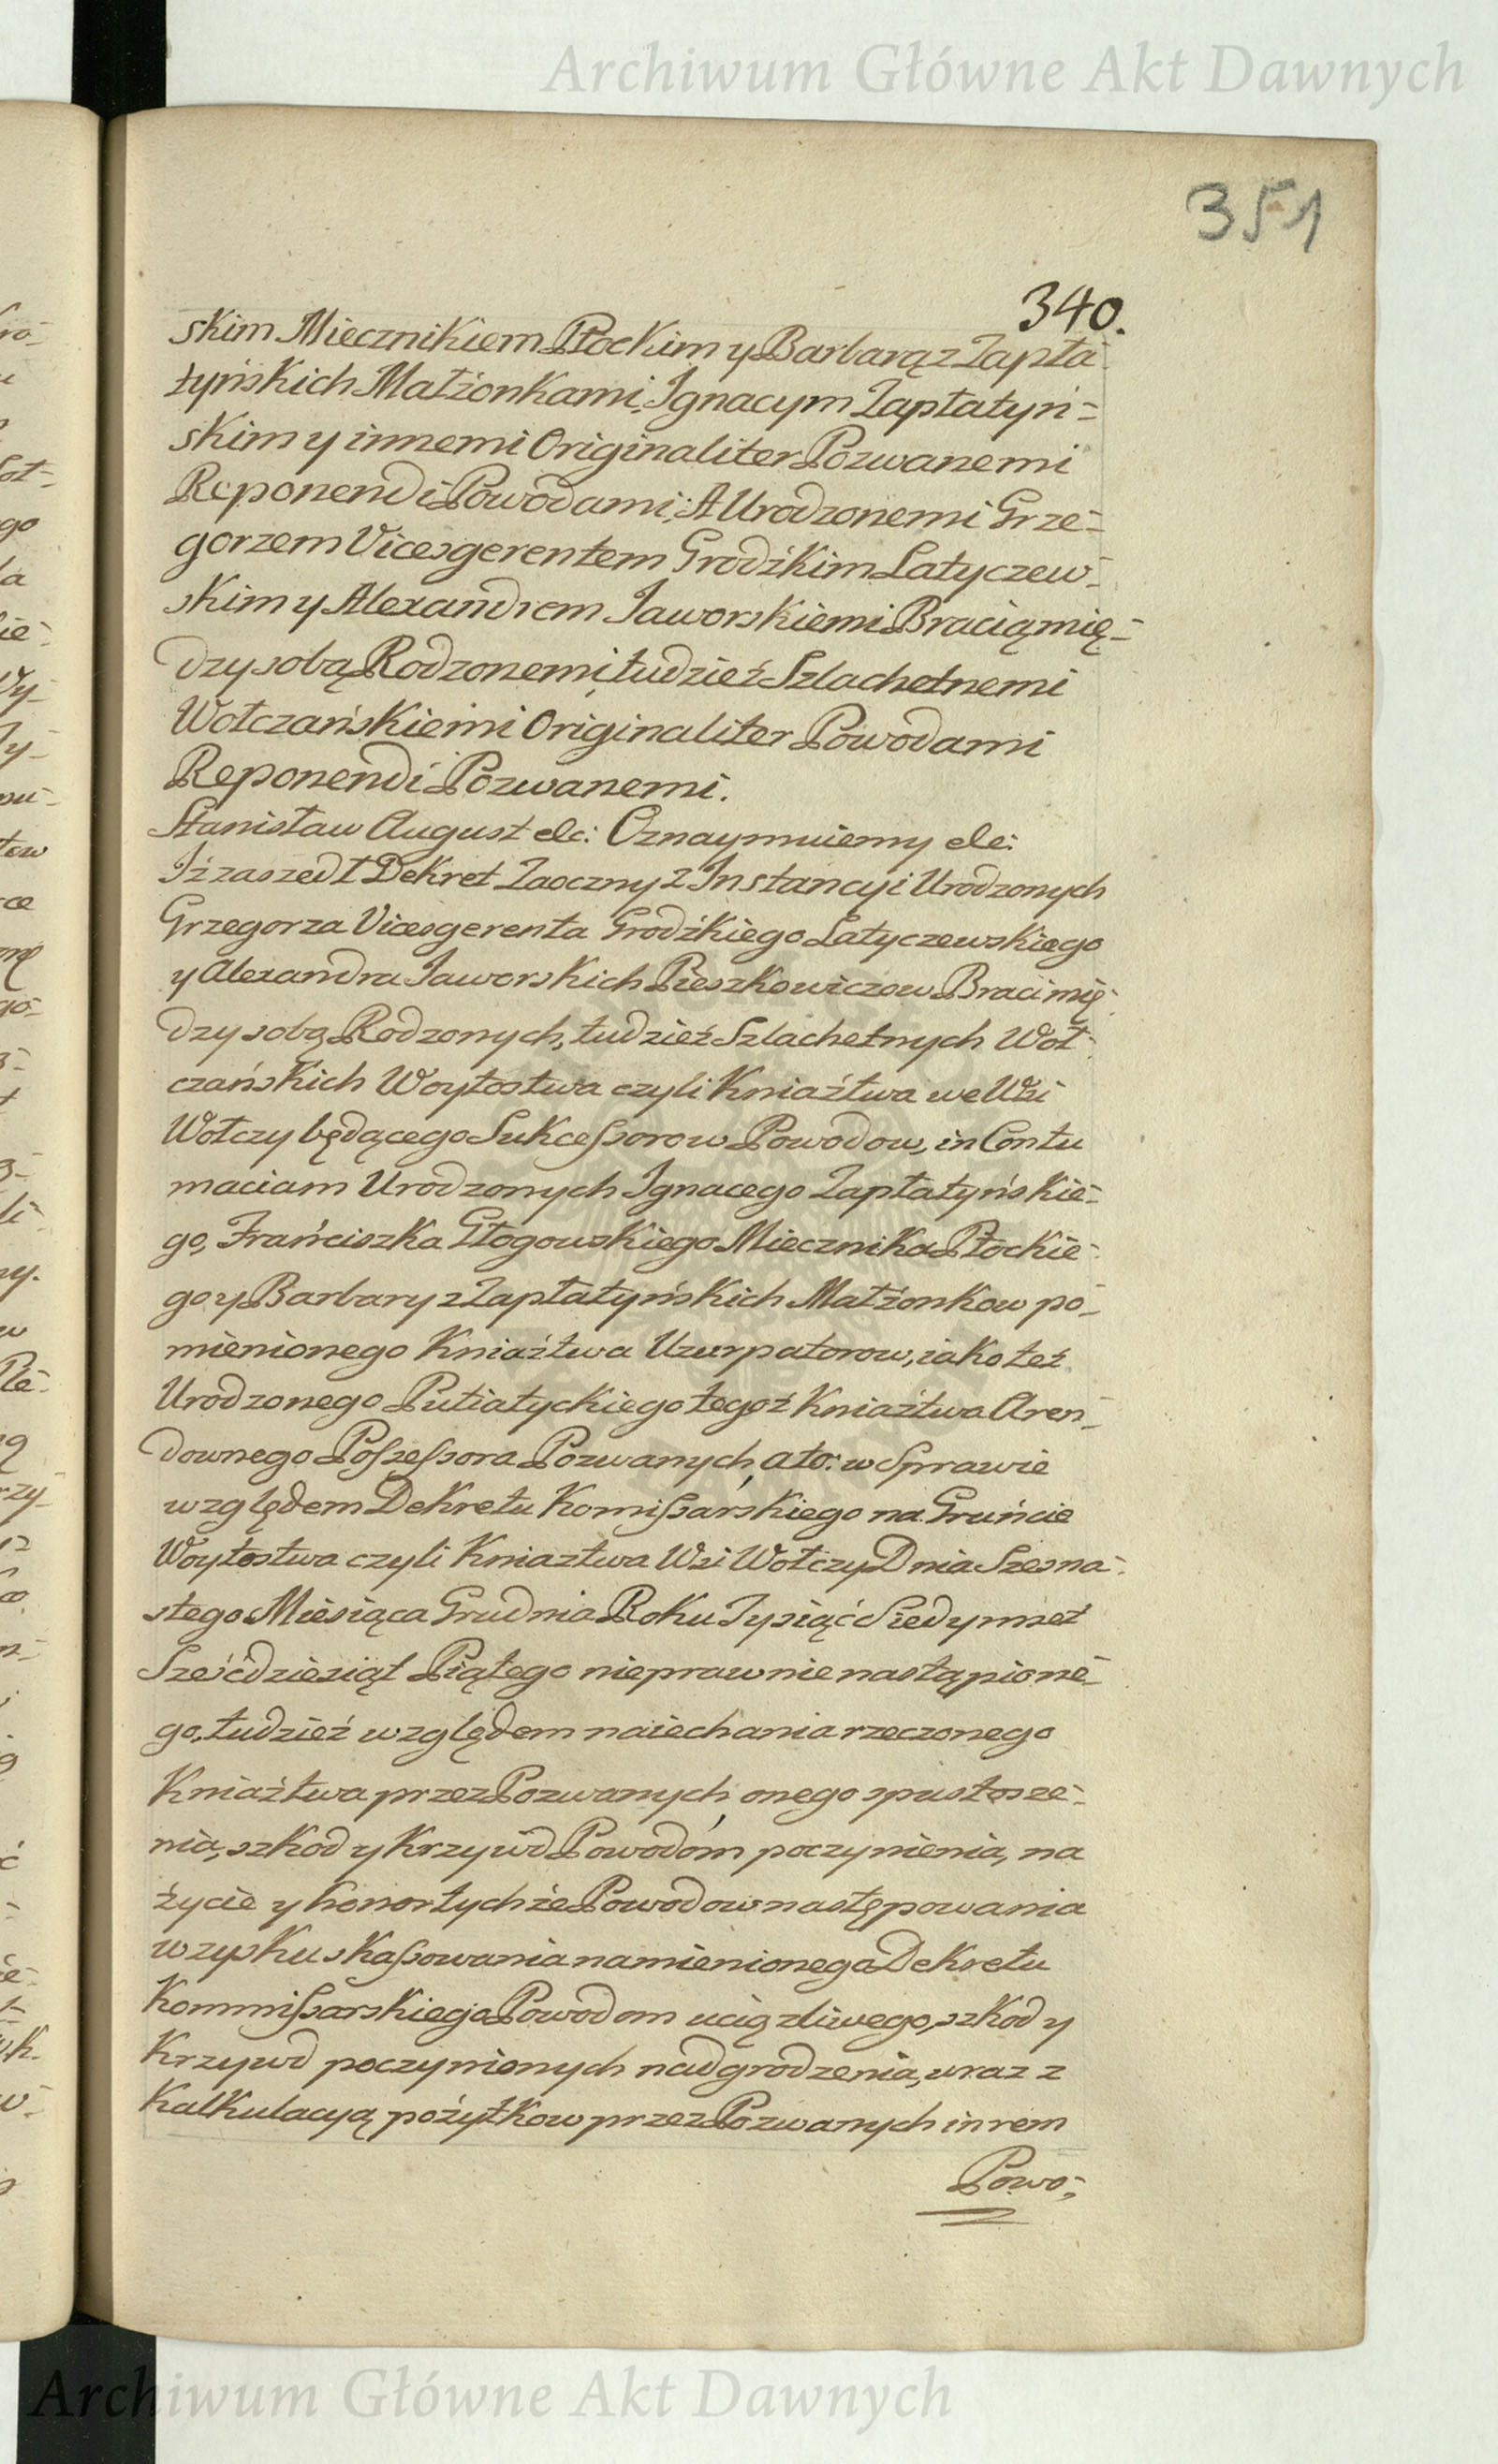 Archiwum Główne Akt Dawnych
351
340.
skim Miecznikiem Płockim y Barbarą z Zapła-
tyńskich Małżonkami, Ignacym Zapłatyń=
skim y innemi Originaliter Pozwanemi
Reponendi Powodami; A Urodzonemi Grze=
gorzem Vicesgerentem Grodzkim Latyczew-
skim y Alexandrem Jaworskiemi Bracią mię-
dzy sobą Rodzonemi, tudzież Szlachetnemi
Wołczańskiemi Originaliter Powodami
Reponendi Pozwanemi.
Stanisław August etc: Oznaymuiemy etc:
Iż zaszedł Dekret Zaoczny z Instancyi Urodzonych
Grzegorza Vicesgerenta Grodzkiego Latyczewskiego
y Alexandra Jaworskich Pieszkowiczow Braci mię-
dzy sobą Rodzonych, tudzież Szlachetnych Woł-
czańskich Woytostwa czyli Kniaźtwa we Wsi
Wołczy będącego Sukcessorow Powodow, in Contu
maciam Urodzonych Ignacego Zapłatyńskie-
go, Franciszka Głogowskiego Miecznika Płockie-
go y Barbary z Zapłatyńskich Małżonkow po-
mienionego Kniaźtwa Uzurpatorow, iako też
Urodzonego Putiatyckiego tegoż Kniaźtwa Aren-
downego Possessora Pozwanych, a to: w Sprawie
względem Dekretu Komissarskiego na Gruńcie
Woytostwa czyli Kniaztwa Wsi Wołczy Dnia Szesna-
stego Miesiąca Grudnia Roku Tysiąć Siedymset
Sześćdziesiąt Piątego nieprawnie nastąpione-
go, tudzież względem naiechania rzeczonego
Kniaźtwa przez Pozwanych, onego spustosze-
nia, szkod y Krzywd Powodom poczynienia, na
życie y honor tychże Powodow następowania
w zysku skassowania namienionego Dekretu
Kommissarskiego Powodom uciązliwego, szkod y
Krzywd poczynionych nadgrodzenia, wraz z
Kalkulacyą pożytkow przez Pozwanych in rem
Powo-
Archiwum Główne Akt Dawnych